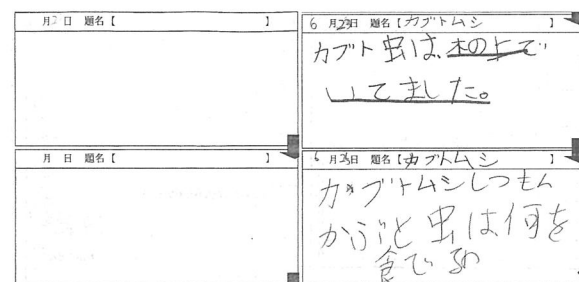 月 日 題名【 】
月 日 題名【 】
6月23日 題名【カブトムシ】
カブト虫は、木の上で
いてました。
6月23日 題名【カブトムシ】
カブトムシしつもん
かぶと虫は何を
食でるの